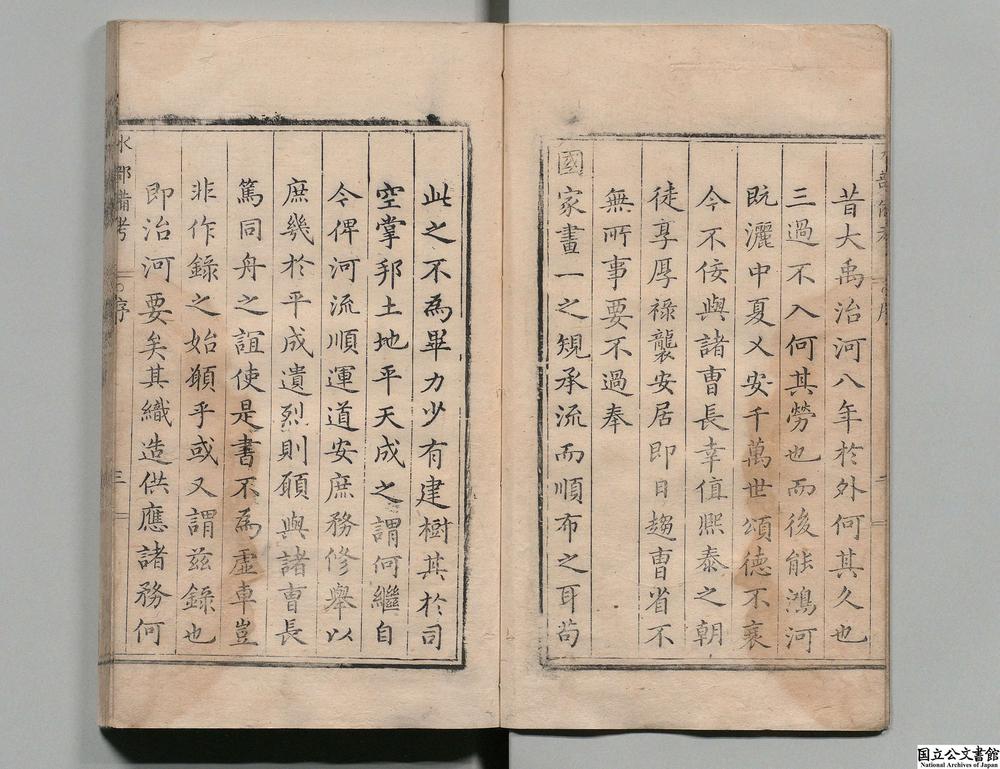 昔大禹治河八年於外何其久也
三過不入何其勞也而後能鴻河
既灑中夏乂安千萬世頌德不衰
今不佞與諸曹長幸值熙泰之朝
徒享厚祿襲安居即日趨曹省不
無所事要不過奉
國家畫一之規承流而順布之耳苟
此之不為畢力少有建樹其於司
空掌邦土地平天成之謂何繼自
今俾河流順運道安庶務修舉以
庶幾於平成遺烈則願與諸曹長
篤同舟之誼使是書不為虛車豈
非作錄之始願乎或又謂茲錄也
即治河要矣其織造供應諸務何
水部備考
序
三
国立公文書館
National Archives of Japan